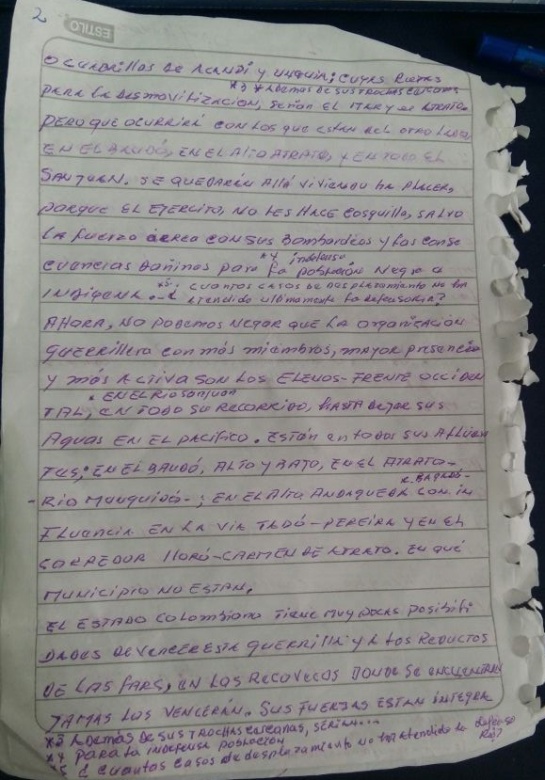 2
ESTILO
DE ACANDÍ Y UNGUÍA; CUYAS RUTAS
*3 *ADEMAS DE SUS TROCHAS CERCANAS
PARA LA DESMOVILIZACION, SERÍAN EL MAR Y EL ATRATO.
PERO QUE OCURRIRÁ CON LOS QUE ESTAN DEL OTRO LADO,
EN EL BAUDÓ, EN EL ALTO ATRATO, Y EN TODO EL
SAN JUAN. SE QUEDARÁN ALLÁ VIVIENDO A PLACER,
PORQUE EL EJERCITO, NO LES HACE COSQUILLA, SALVO
LA FUERZA AEREA CON SUS BOMBARDEOS Y LAS CONSE
*4 indefensa
CUENCIAS DAÑINAS PARA LA POBLACIÓN NEGRA E
*5 ¿ CUANTOS CASOS DE DESPLAZAMIENTO NO HA
INDIGENA. ATENDIDO ULTIMAMENTE LA DEFENSORIA?
AHORA, NO PODEMOS NEGAR QUE LA ORGANIZACIÓN
GUERRILLERA CON MÁS MIEMBROS, MAYOR PRESENCIA
Y MÁS ACTIVA SON LOS ELENOS-FRENTE OCCIDEN
. EN EL RIO SANJUAN
TAL, EN TODO SU RECORRIDO, HASTA DEJAR SUS
AGUAS EN EL PACÍFICO. ESTÁN en TODOS SUS AFLUEN
TES; EN EL BAUDÓ, ALTO Y BAJO, EN EL ATRATO-
R. BAGADÓ-
-RIO MUNGUIDÓ-; EN EL ALTO ANDAGUEDA CON IN
FLUENCIA EN LA VIA TADÓ-PEREIRA Y EN EL
CORREDOR LLORÓ-CARMEN DE ATRATO. EN QUÉ
MUNICIPIO NO ESTAN.
EL ESTADO COLOMBIANO TIENE MUY POCAS POSIBILI
DADES DE VENCER ESTA GUERRILLA Y A LOS REDUCTOS
DE LAS FARS, EN LOS RECOVECOS DONDE SE ENCUENTRAN
JAMAS LOS VENCERÁN. SUS FUERZAS ESTAN INTEGRA
*3 ADEMAS DE SUS TROCHAS CERCANAS, SERÍAN...
*4 PARA LA INDEFENSA POBLACIÓN
*5 ¿ Cuantos casos de desplazamiento no ha atendido la defenso
ría?